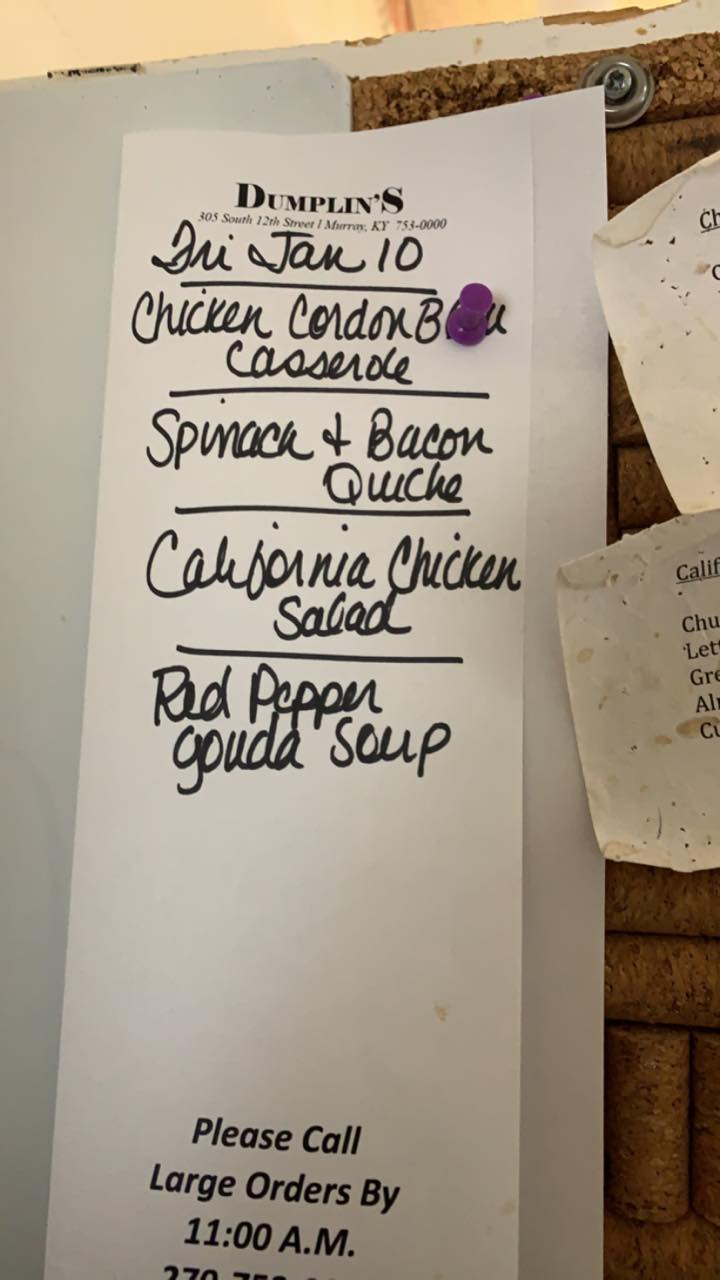 DUMPLIN'S
305 South 12th Street | Murray, KY 753-0000
Fri Jan 10
Chicken Cordon
Casserole
Spinach + Bacon
Quiche
California Chicken
Salad
Red Pepper
Gouda Soup
Please Call
Large Orders By
11:00 A.M.